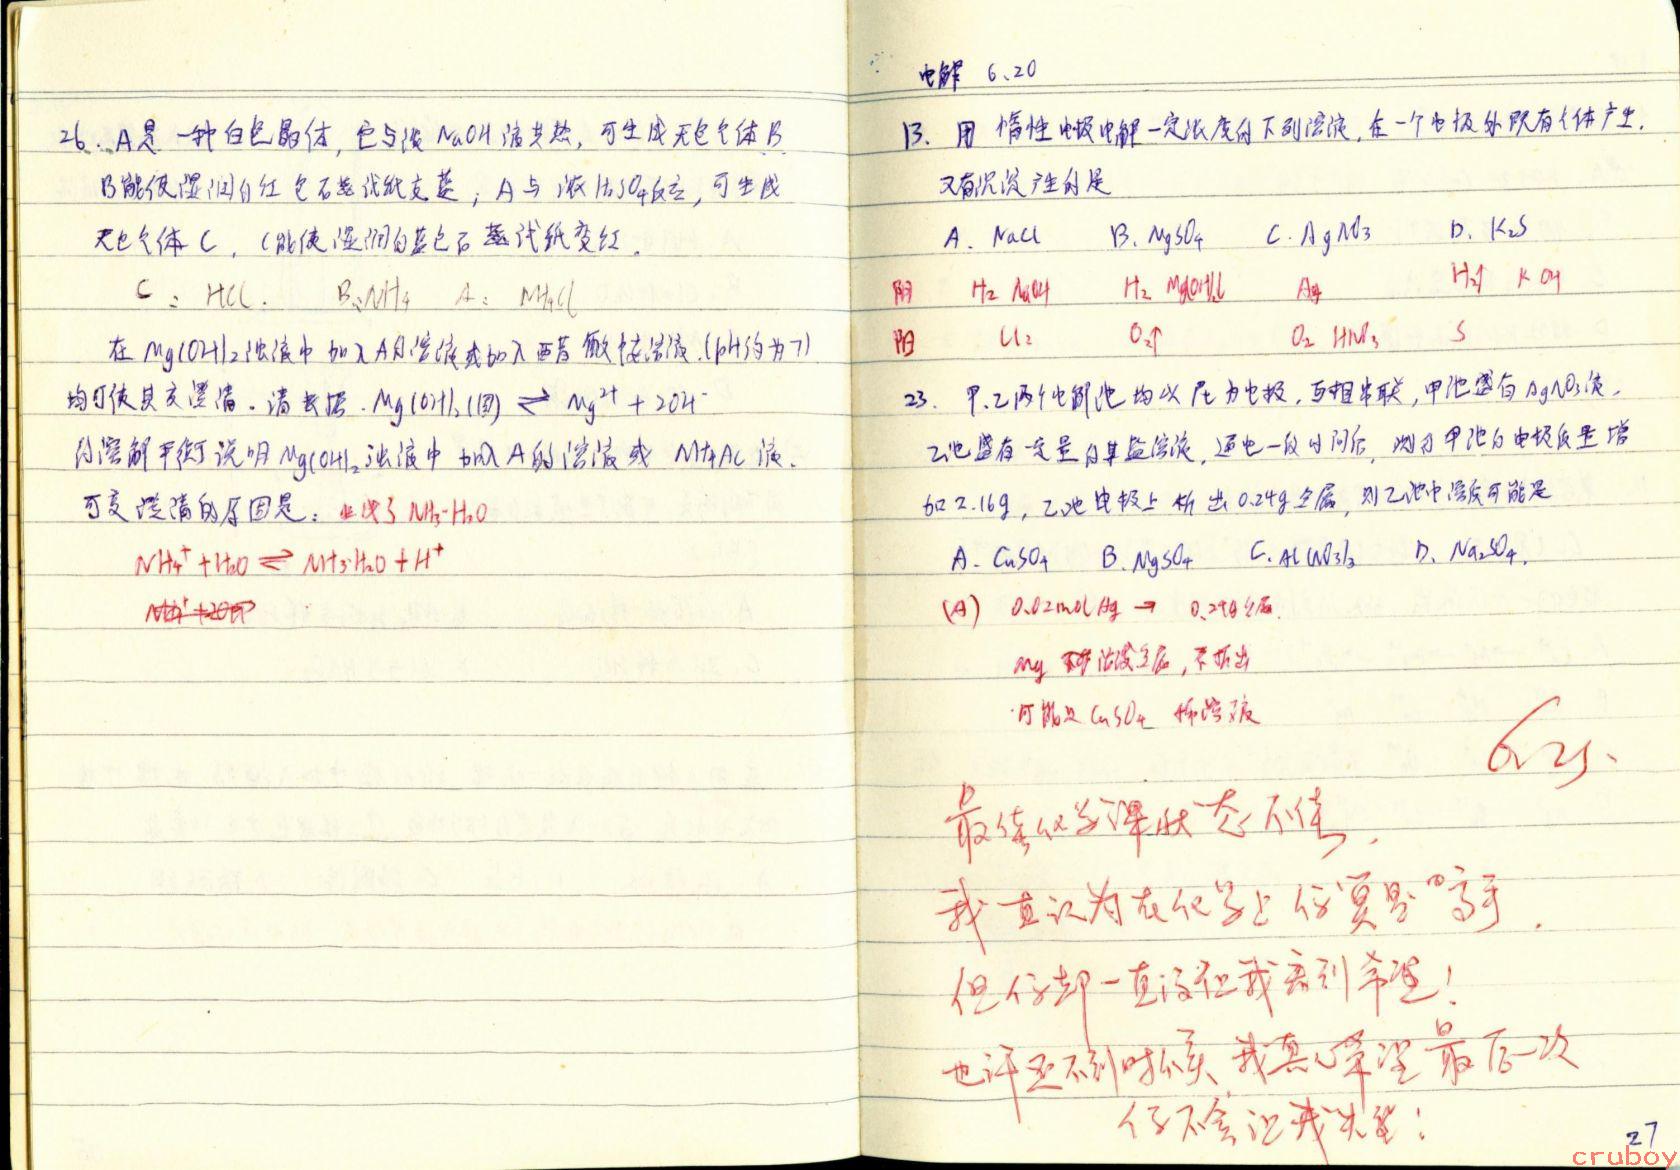 26. A是一种白色晶体，它与浓NaOH液共热，可生成无色气体B
B能使湿润的红色石蕊试纸变蓝；A与浓H₂SO₄反应，可生成
无色气体C，C能使湿润的蓝色石蕊试纸变红．
C：HCl． B：NH₄ A：NH₄Cl
在Mg(OH)₂浊液中加入A的溶液或加入醋酸铵溶液．(pH约为7)
均可使其变澄清．请根据．Mg(OH)₂(固) ⇌ Mg²⁺ + 2OH⁻
的溶解平衡 说明Mg(OH)₂浊液中加入A的溶液或 NH₄AC液．
可变澄清的原因是：生成了NH₃·H₂O
NH₄⁺ + H₂O ⇌ NH₃·H₂O + H⁺
电解 6.20
13. 用惰性电极电解一定浓度的下列溶液，在一个电极处既有气体产生．
又有沉淀产生的是
A. NaCl B. MgSO₄ C. AgNO₃ D. K₂S
阴 H₂ NaOH H₂ Mg(OH)₂↓ Ag H₂↑ KOH
阳 Cl₂ O₂↑ O₂ HNO₃ S
23. 甲．乙两个电解池均以Pt为电极，互相串联，甲池盛有AgNO₃液．
乙池盛有一定量的某盐溶液，通电一段时间后，测得甲池的电极质量增
加2.16g，乙池电极上析出0.24g金属，则乙池中溶质可能是
A. CuSO₄ B. MgSO₄ C. Al(NO₃)₃ D. Na₂SO₄.
(A) 0.02mol Ag → 0.24g金属.
Mg 活泼金属，不析出
可能是CuSO₄ 稀溶液
6.25.
最佳化学课状态不佳．
我一直认为在化学上你算是"高手．
但你却一直没让我看到希望！
也许还不到时候 我真心希望最后一次
你不会让我失望！
27
cruboy